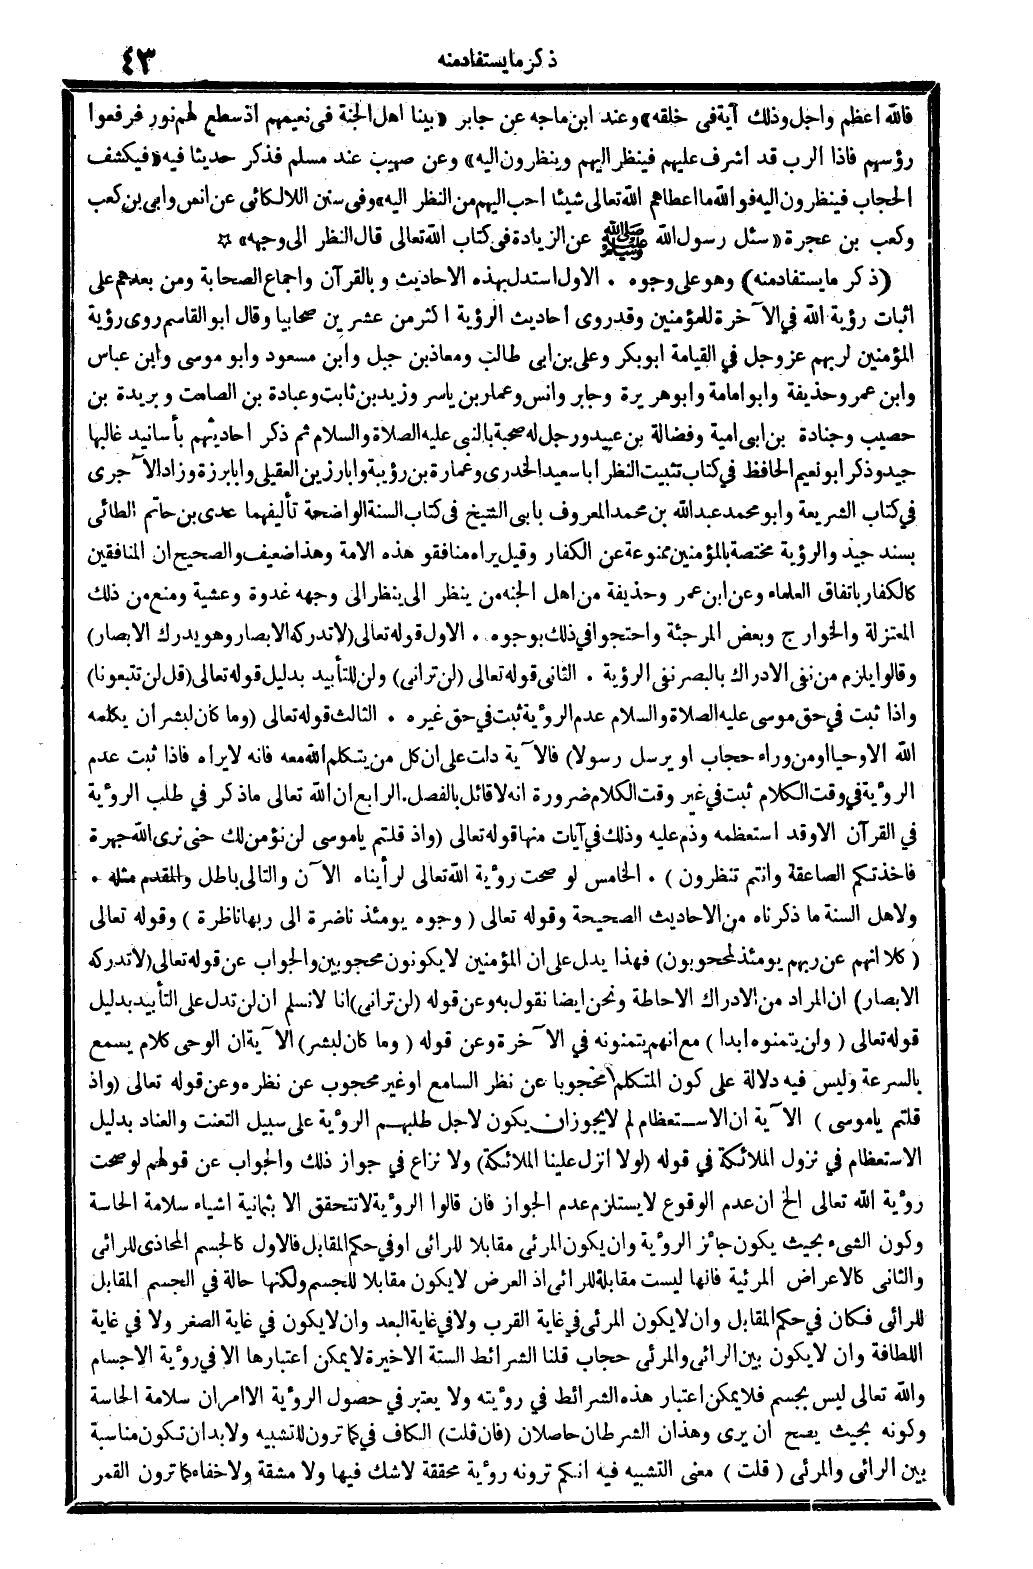 ذكر ما يستفاد منه
٤٣
فالله اعظم واجل وذلك آية في خلقه» وعند ابن ماجه عن جابر «بينا اهل الجنة في نعيمهم اذ سطع لهم نور فرفعوا
رؤسهم فاذا الرب قد اشرف عليهم فينظر اليهم وينظرون اليه» وعن صهيب عند مسلم فذكر حديثا فيه «فيكشف
الحجاب فينظرون اليه فوالله ما اعطاهم الله تعالى شيئا احب اليهم من النظر اليه» وفي سنن اللالكائي عن انس وابي بن كعب
وكعب بن عجرة «سئل رسول الله ﷺ عن الزيادة في كتاب الله تعالى قال النظر الى وجهه» ☆
(ذكر ما يستفاد منه) وهو على وجوه . الاول استدل بهذه الاحاديث وبالقرآن واجماع الصحابة ومن بعدهم على
اثبات رؤية الله في الآخرة للمؤمنين وقد روى احاديث الرؤية اكثر من عشرين صحابيا وقال ابو القاسم روى رؤية
المؤمنين لربهم عز وجل في القيامة ابو بكر وعلي بن ابي طالب ومعاذ بن جبل وابن مسعود وابو موسى وابن عباس
وابن عمر وحذيفة وابو امامة وابو هريرة وجابر وانس وعمار بن ياسر وزيد بن ثابت وعبادة بن الصامت وبريدة بن
حصيب وجنادة بن ابي امية وفضالة بن عبيد ورجل له صحبة بالنبي عليه الصلاة والسلام ثم ذكر احاديثهم بأسانيد غالبها
جيد وذكر ابو نعيم الحافظ في كتاب تثبيت النظر ابا سعيد الخدري وعمارة بن رؤيبة وابا رزين العقيلي وابا برزة وزاد الآجري
في كتاب الشريعة وابو محمد عبد الله بن محمد المعروف بابي الشيخ في كتاب السنة الواضحة تأليفهما عدي بن حاتم الطائي
بسند جيد والرؤية مختصة بالمؤمنين ممنوعة عن الكفار وقيل يراه منافقو هذه الامة وهذا ضعيف والصحيح ان المنافقين
كالكفار باتفاق العلماء وعن ابن عمر وحذيفة من اهل الجنه من ينظر الى ينظر الى وجهه غدوة وعشية ومنع من ذلك
المعتزلة والخوارج وبعض المرجئة واحتجوا في ذلك بوجوه . الاول قوله تعالى (لا تدركه الابصار وهو يدرك الابصار)
وقالوا يلزم من نفي الادراك بالبصر نفي الرؤية . الثاني قوله تعالى (لن تراني) ولن للتأبيد بدليل قوله تعالى (قل لن تتبعونا)
واذا ثبت في حق موسى عليه الصلاة والسلام عدم الرؤية ثبت في حق غيره . الثالث قوله تعالى (وما كان لبشر ان يكلمه
الله الا وحيا او من وراء حجاب او يرسل رسولا) فالآية دلت على ان كل من يتكلم الله معه فانه لا يراه فاذا ثبت عدم
الرؤية في وقت الكلام ثبت في غير وقت الكلام ضرورة انه لا قائل بالفصل. الرابع ان الله تعالى ما ذكر في طلب الرؤية
في القرآن الا وقد استعظمه وذم عليه وذلك في آيات منها قوله تعالى (واذ قلتم يا موسى لن نؤمن لك حتى نرى الله جهرة
فاخذتكم الصاعقة وانتم تنظرون) . الخامس لو صحت رؤية الله تعالى لرأيناه الآن والتالي باطل والمقدم مثله .
ولاهل السنة ما ذكرناه من الاحاديث الصحيحة وقوله تعالى (وجوه يومئذ ناضرة الى ربها ناظرة) وقوله تعالى
(كلا انهم عن ربهم يومئذ لمحجوبون) فهذا يدل على ان المؤمنين لا يكونون محجوبين والجواب عن قوله تعالى (لا تدركه
الابصار) ان المراد من الادراك الاحاطة ونحن ايضا نقول به وعن قوله (لن تراني) انا لا نسلم ان لن تدل على التأبيد بدليل
قوله تعالى (ولن يتمنوه ابدا) مع انهم يتمنونه في الآخرة وعن قوله (وما كان لبشر) الآية ان الوحي كلام يسمع
بالسرعة وليس فيه دلالة على كون المتكلم محجوبا عن نظر السامع او غير محجوب عن نظره وعن قوله تعالى (واذ
قلتم يا موسى) الآية ان الاستعظام لم لا يجوز ان يكون لاجل طلبهم الرؤية على سبيل التعنت والعناد بدليل
الاستعظام في نزول الملائكة في قوله (لولا انزل علينا الملائكة) ولا نزاع في جواز ذلك والجواب عن قولهم لو صحت
رؤية الله تعالى الخ ان عدم الوقوع لا يستلزم عدم الجواز فان قالوا الرؤية لا تتحقق الا بثمانية اشياء سلامة الحاسة
وكون الشيء بحيث يكون جائز الرؤية وان يكون المرئي مقابلا للرائي او في حكم المقابل فالاول كالجسم المحاذي للرائي
والثاني كالاعراض المرئية فانها ليست مقابلة للرائي اذ العرض لا يكون مقابلا للجسم ولكنها حالة في الجسم المقابل
للرائي فكان في حكم المقابل وان لا يكون المرئي في غاية القرب ولا في غاية البعد وان لا يكون في غاية الصغر ولا في غاية
اللطافة وان لا يكون بين الرائي والمرئي حجاب قلنا الشرائط الستة الاخيرة لا يمكن اعتبارها الا في رؤية الاجسام
والله تعالى ليس بجسم فلا يمكن اعتبار هذه الشرائط في رؤيته ولا يعتبر في حصول الرؤية الا امران سلامة الحاسة
وكونه بحيث يصح ان يرى وهذان الشرطان حاصلان (فان قلت) الكاف في كما ترون للتشبيه ولا بد ان تكون مناسبة
بين الرائي والمرئي (قلت) معنى التشبيه فيه انكم ترونه رؤية محققة لا شك فيها ولا مشقة ولا خفاء كما ترون القمر